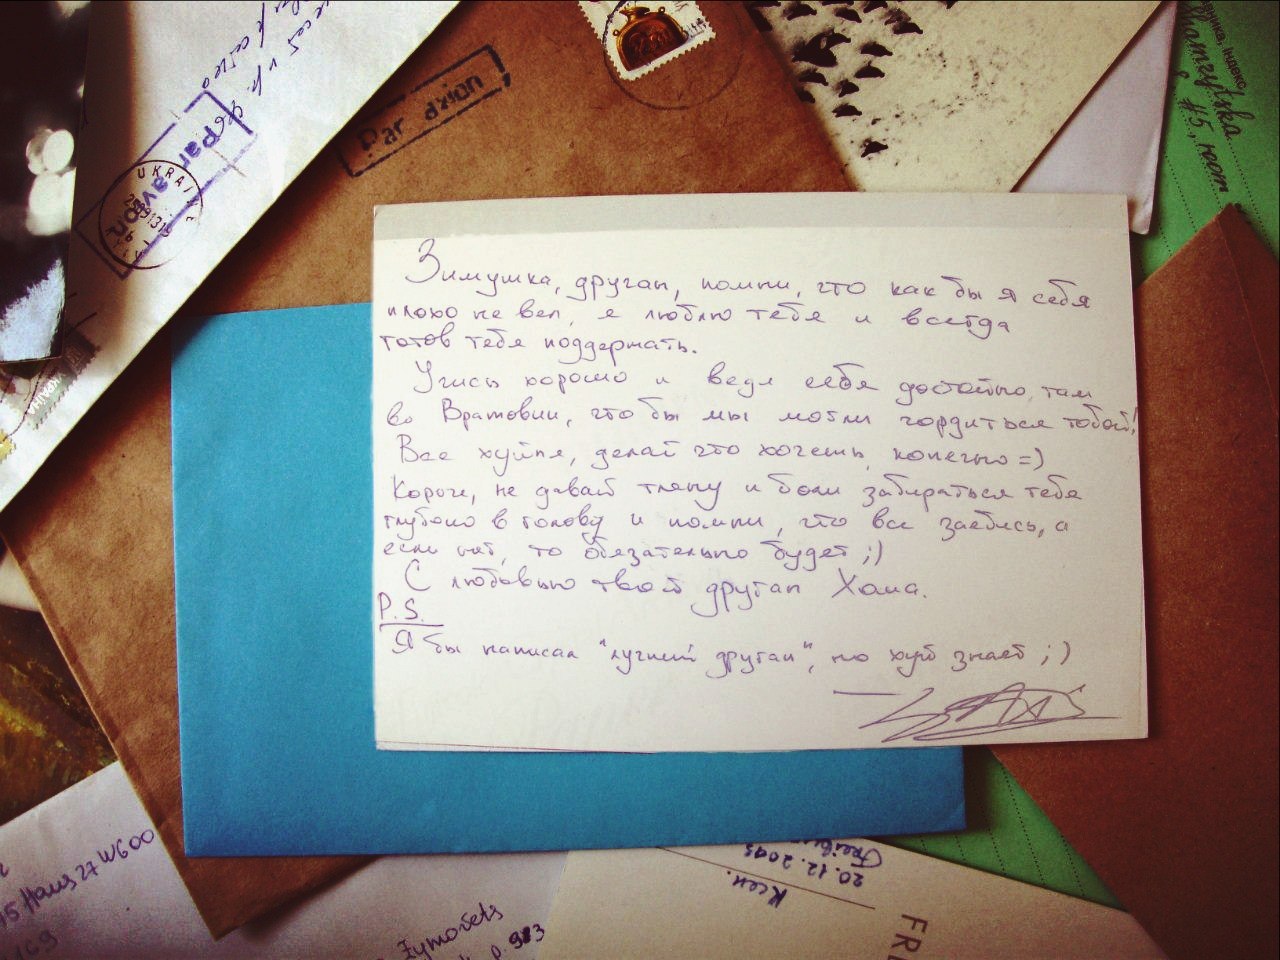 Par avion
Par
avion
UKRAINE
#5, room
Зимушка, друган, помни, что как бы я себя
плохо не вел, я люблю тебя и всегда
готов тебя поддержать.
Учись хорошо и веди себя достойно, там
во Вратовии, что бы мы могли гордиться тобой!
Все хуйня, делай что хочешь, конечно =)
Короче, не давай тлену и боли забираться тебе
глубоко в голову и помни, что все заебись, а
если нет, то обязательно будет ;)
С любовью твой друган Хома.
P.S.
Я бы написал "лучший друган", но хуй знает ;)
Haus 27 W600
Zymovets
20.12.2013
Freiburg
Ксен.
FRE